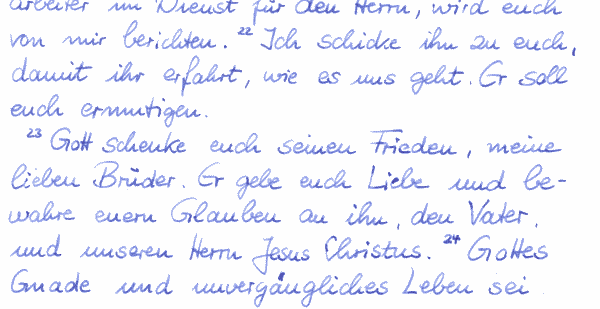 arbeiter im Dienst für den Herrn, wird euch
von mir berichten. ²² Ich schicke ihn zu euch,
damit ihr erfahrt, wie es uns geht. Er soll
euch ermutigen.
²³ Gott schenke euch seinen Frieden, meine
lieben Brüder. Er gebe euch Liebe und be-
wahre euern Glauben an ihn, den Vater,
und unseren Herrn Jesus Christus. ²⁴ Gottes
Gnade und unvergängliches Leben sei